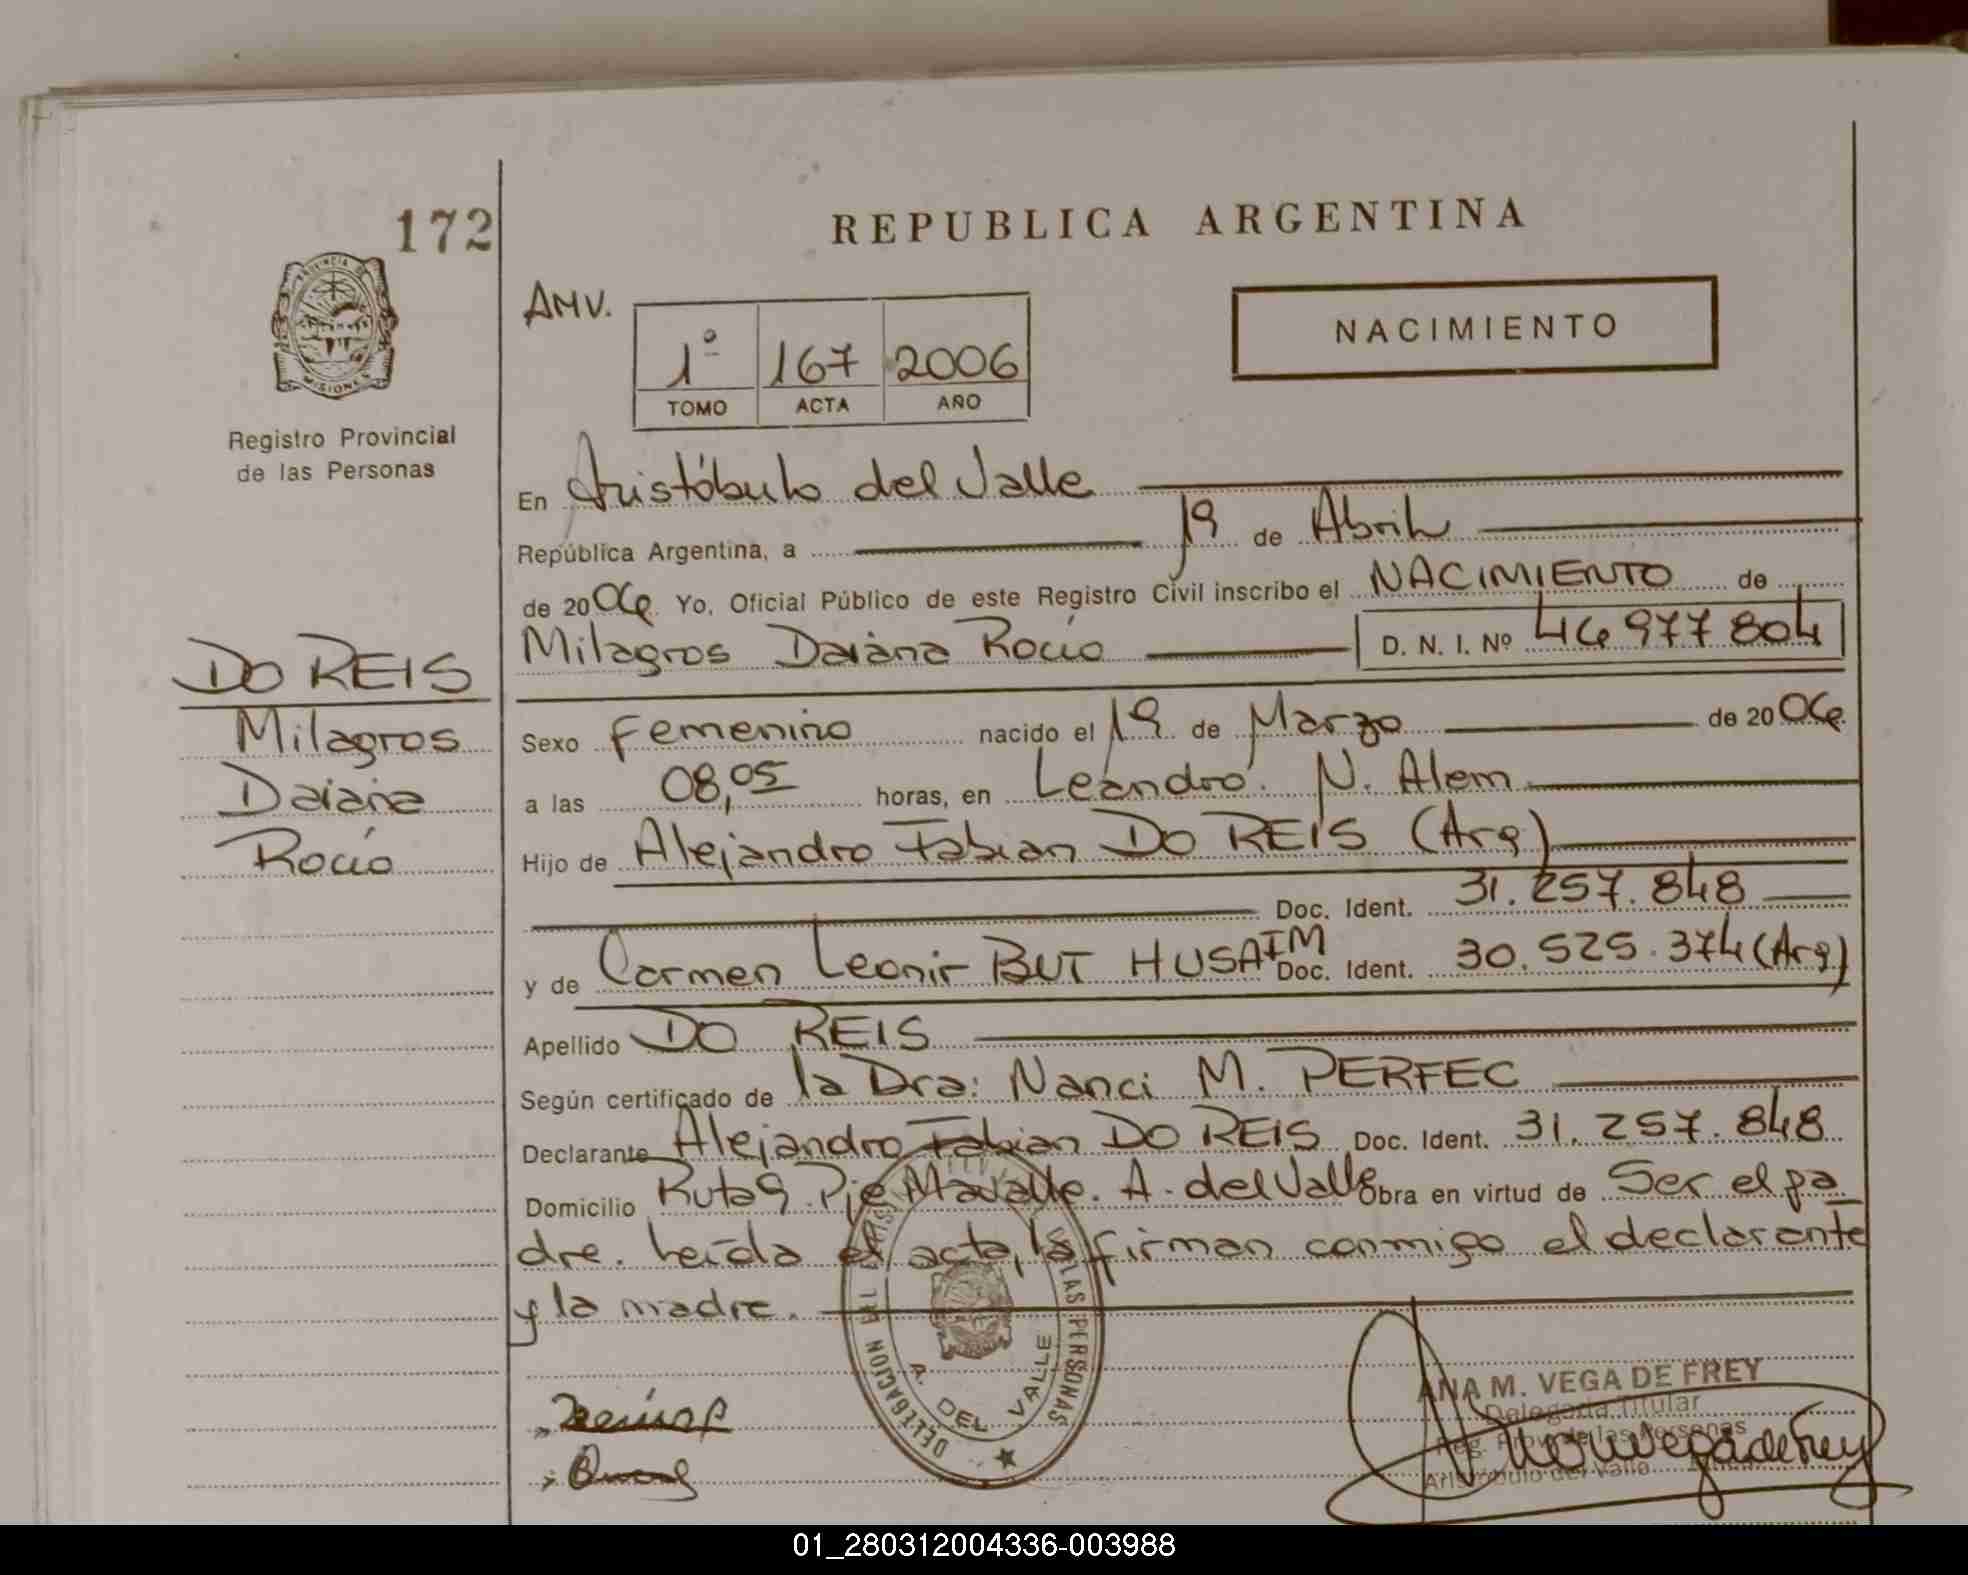 172
REPUBLICA ARGENTINA
PROVINCIA DE
MISIONES
Registro Provincial
de las Personas
AMV.
1º 167 2006
TOMO ACTA AÑO
NACIMIENTO
En Aristóbulo del Valle
República Argentina, a 19 de Abril
de 2006. Yo, Oficial Público de este Registro Civil inscribo el NACIMIENTO de
Milagros Daiana Rocío D. N. I. Nº 46977804
DO REIS
Milagros
Daiana
Rocío
Sexo femenino nacido el 19 de Marzo de 2006
a las 08,05 horas, en Leandro. N. Alem
Hijo de Alejandro Fabian DO REIS (Arg)
Doc. Ident. 31.257.848
y de Carmen Leonir BUT HUSAIM Doc. Ident. 30.525.374 (Arg)
Apellido DO REIS
Según certificado de la Dra: Nanci M. PERFEC
Declarante Alejandro Fabian DO REIS Doc. Ident. 31.257.848
Domicilio Ruta 9. Pje A. del Valle Obra en virtud de Ser el pa_
dre. Leída el acta, la firman conmigo el declarante
y la madre.
DELEGACION DEL LAS PERSONAS
A. DEL VALLE
ANA M. VEGA DE FREY
Delegada Titular
Reg. Prov. de las Personas
Aristóbulo del Valle
01_280312004336-003988